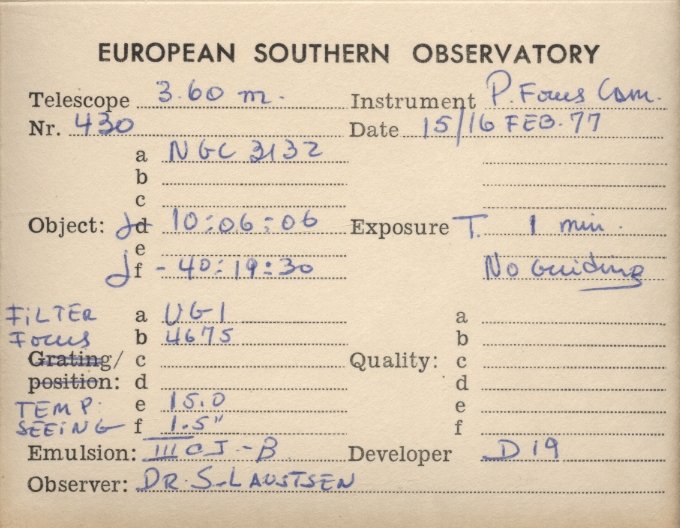 EUROPEAN SOUTHERN OBSERVATORY
Telescope 3.60 m. Instrument P. Focus Cam.
Nr. 430 Date 15/16 FEB. 77
a NGC 3132
b
c
Object: d 10:06:06 Exposure T. 1 min.
e
f -40:19:30 No Guiding
FILTER a UG1 a
Focus b 4675 b
Grating/ c Quality: c
position: d d
TEMP. e 15.0 e
SEEING f 1.5" f
Emulsion: III a J-B Developer D19
Observer: DR. S. LAUSTSEN